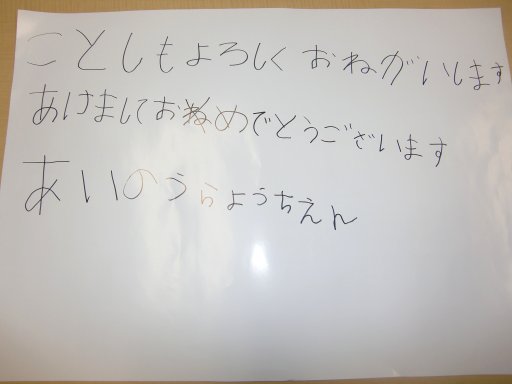 ことしもよろしくおねがいします
あけましておめでとうございます
あいのうらようちえん